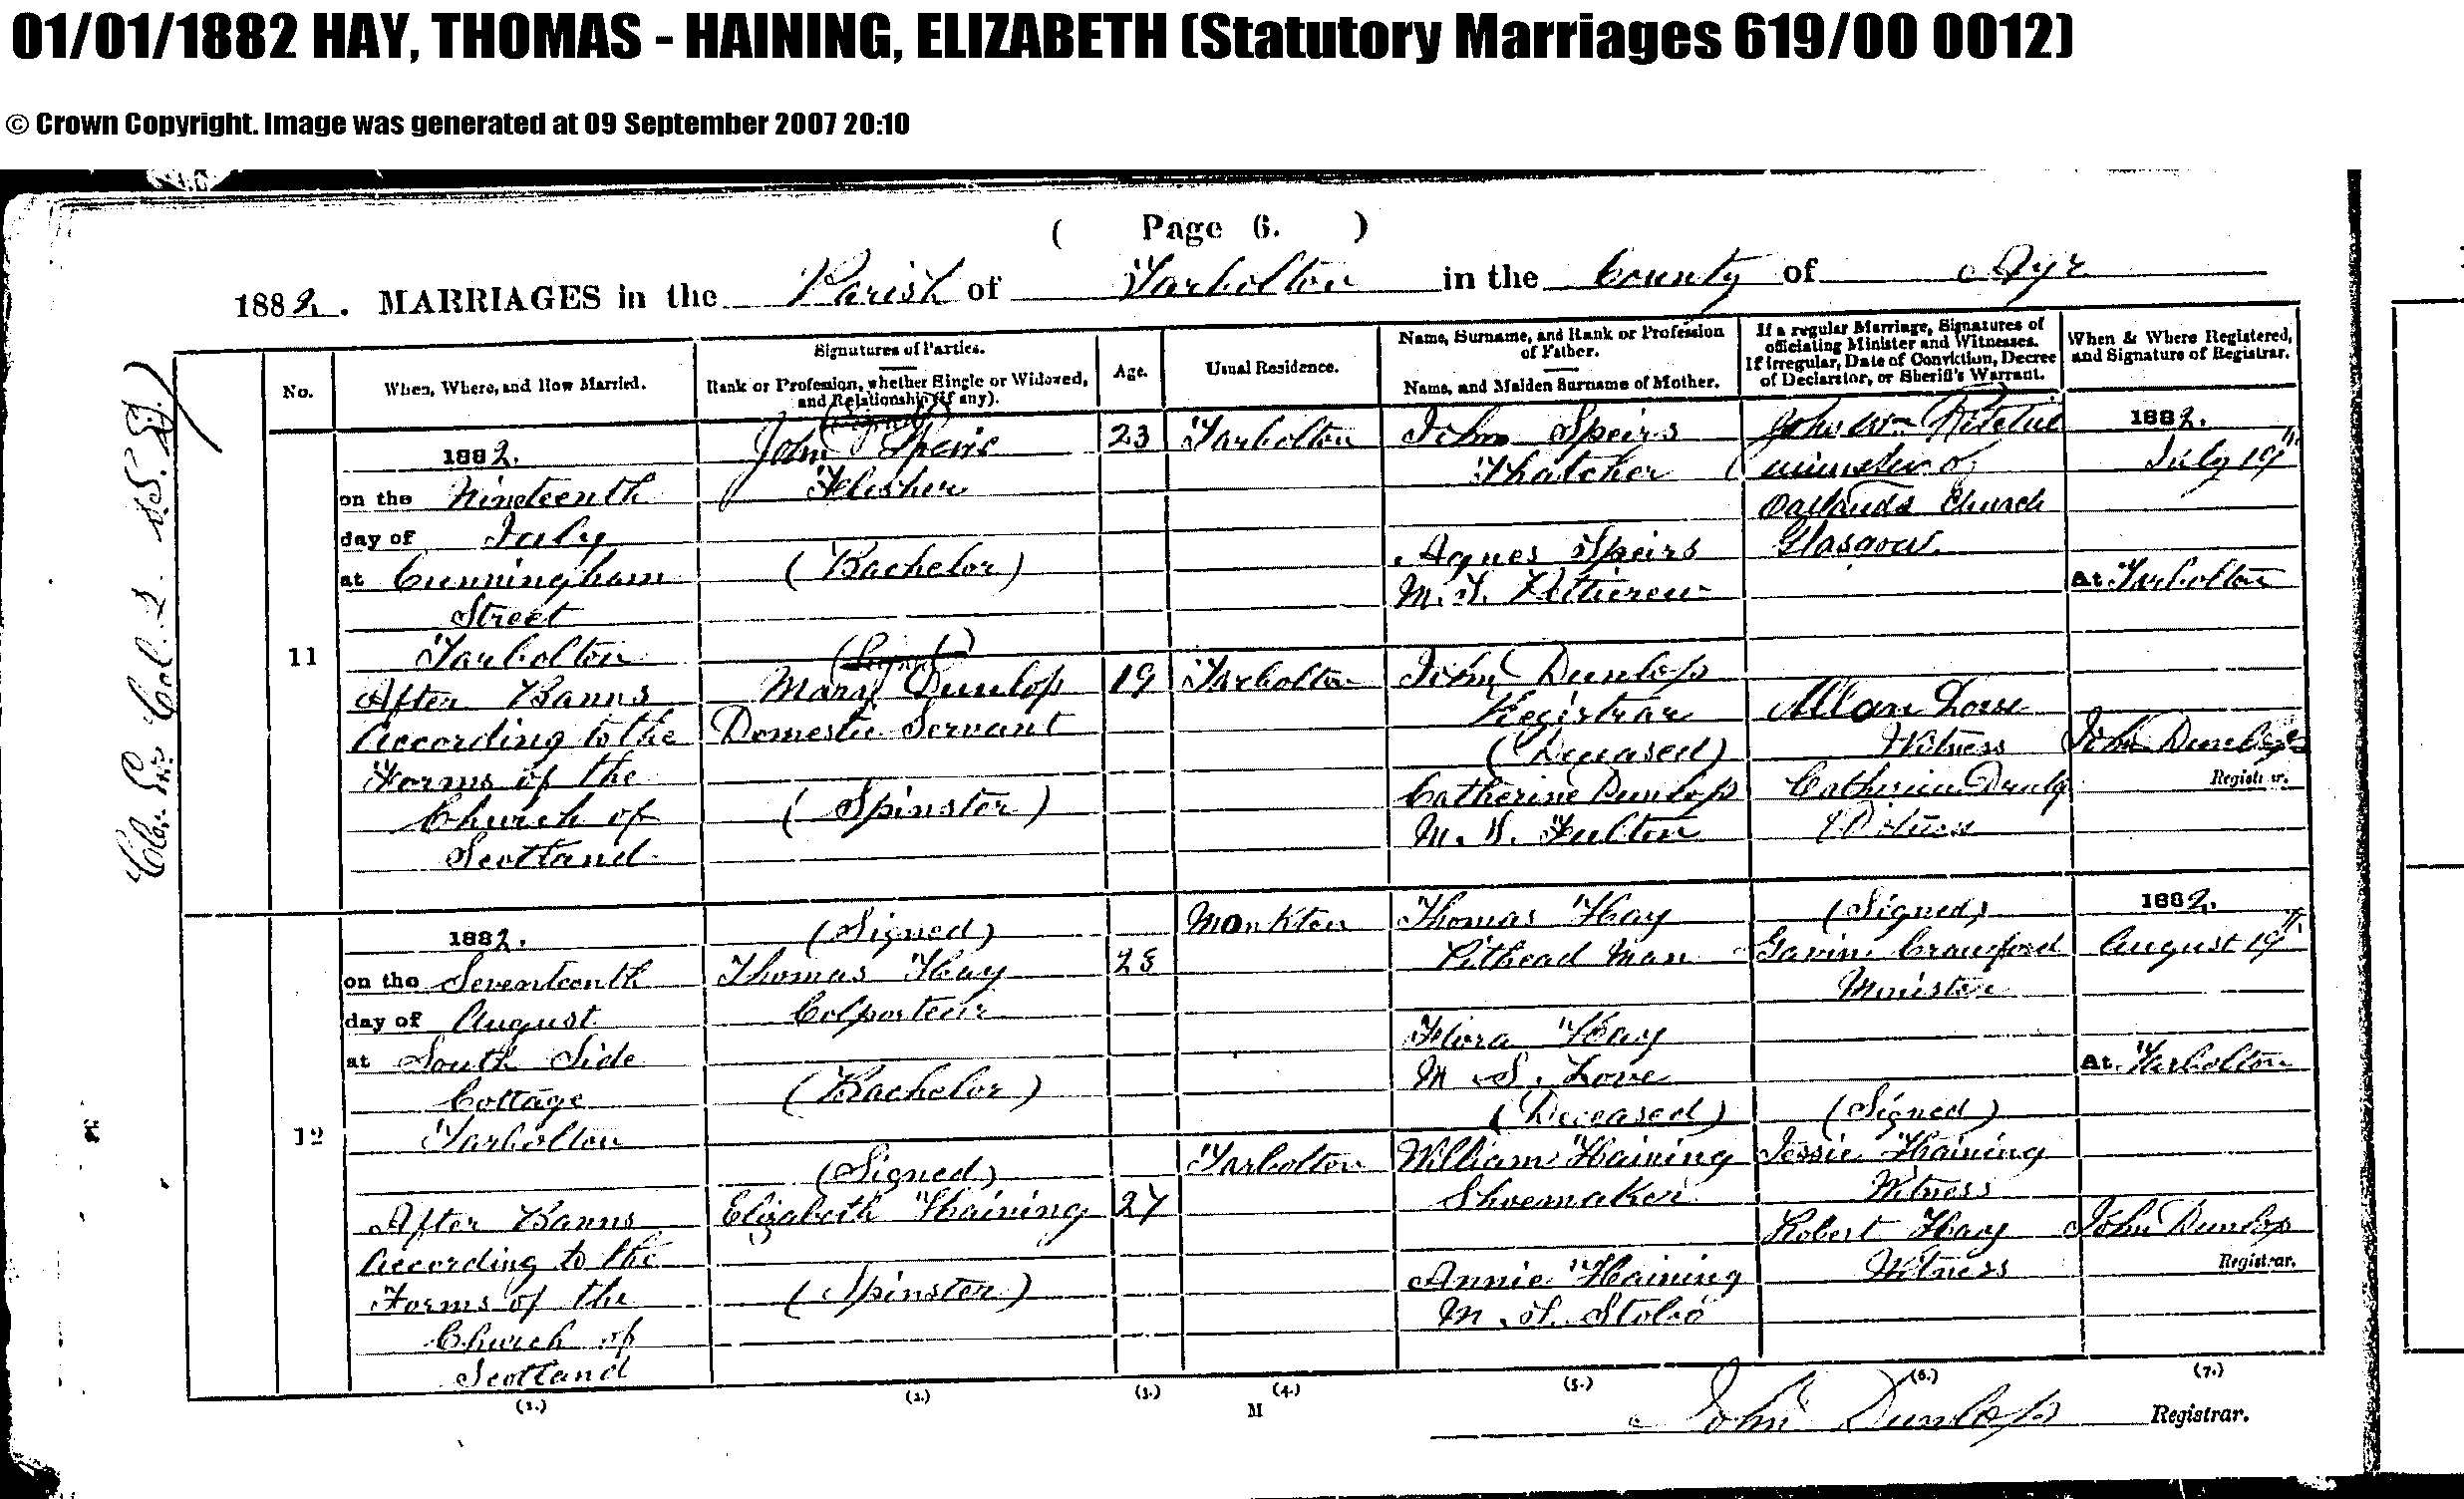 01/01/1882 HAY, THOMAS - HAINING, ELIZABETH (Statutory Marriages 619/00 0012)
© Crown Copyright. Image was generated at 09 September 2007 20:10
( Page 6. )
1882. MARRIAGES in the Parish of Tarbolton in the County of Ayr
No.
When, Where, and How Married.
Signatures of Parties.
Rank or Profession, whether Single or Widowed,
and Relationship (if any).
Age.
Usual Residence.
Name, Surname, and Rank or Profession
of Father.
Name, and Maiden Surname of Mother.
If a regular Marriage, Signatures of
officiating Minister and Witnesses.
If irregular, Date of Conviction, Decree
of Declarator, or Sheriff's Warrant.
When & Where Registered,
and Signature of Registrar.
11
1882.
on the Nineteenth
day of July
at Cunningham
Street
Tarbolton
After Banns
According to the
Forms of the
Church of
Scotland
(Signed)
John Speirs
Flesher
(Bachelor)
(Signed)
Mary Dunlop
Domestic Servant
(Spinster)
23
19
Tarbolton
Tarbolton
John Speirs
Thatcher
Agnes Speirs
M.S. Pettigrew
John Dunlop
Registrar
(Deceased)
Catherine Dunlop
M.S. Fulton
John Wm Ritchie
minister of
Oatlands Church
Glasgow
Allan
Witness
Catherine Dunlop
Witness
1882.
July 19th
At Tarbolton
John Dunlop
Registrar.
12
1882.
on the Seventeenth
day of August
at South Side
Cottage
Tarbolton
After Banns
According to the
Forms of the
Church of
Scotland
(Signed)
Thomas Hay
Colporteur
(Bachelor)
(Signed)
Elizabeth Haining
(Spinster)
28
27
Monkton
Tarbolton
Thomas Hay
Pithead Man
Flora Hay
M.S. Love
(Deceased)
William Haining
Shoemaker
Annie Haining
M.S.
(Signed)
Gavin Crawford
Minister
(Signed)
Jessie Haining
Witness
Robert Hay
Witness
1882.
August 19th
At Tarbolton
John Dunlop
Registrar.
(1.)
(2.)
(3.)
(4.)
(5.)
(6.)
(7.)
M
John Dunlop Registrar.